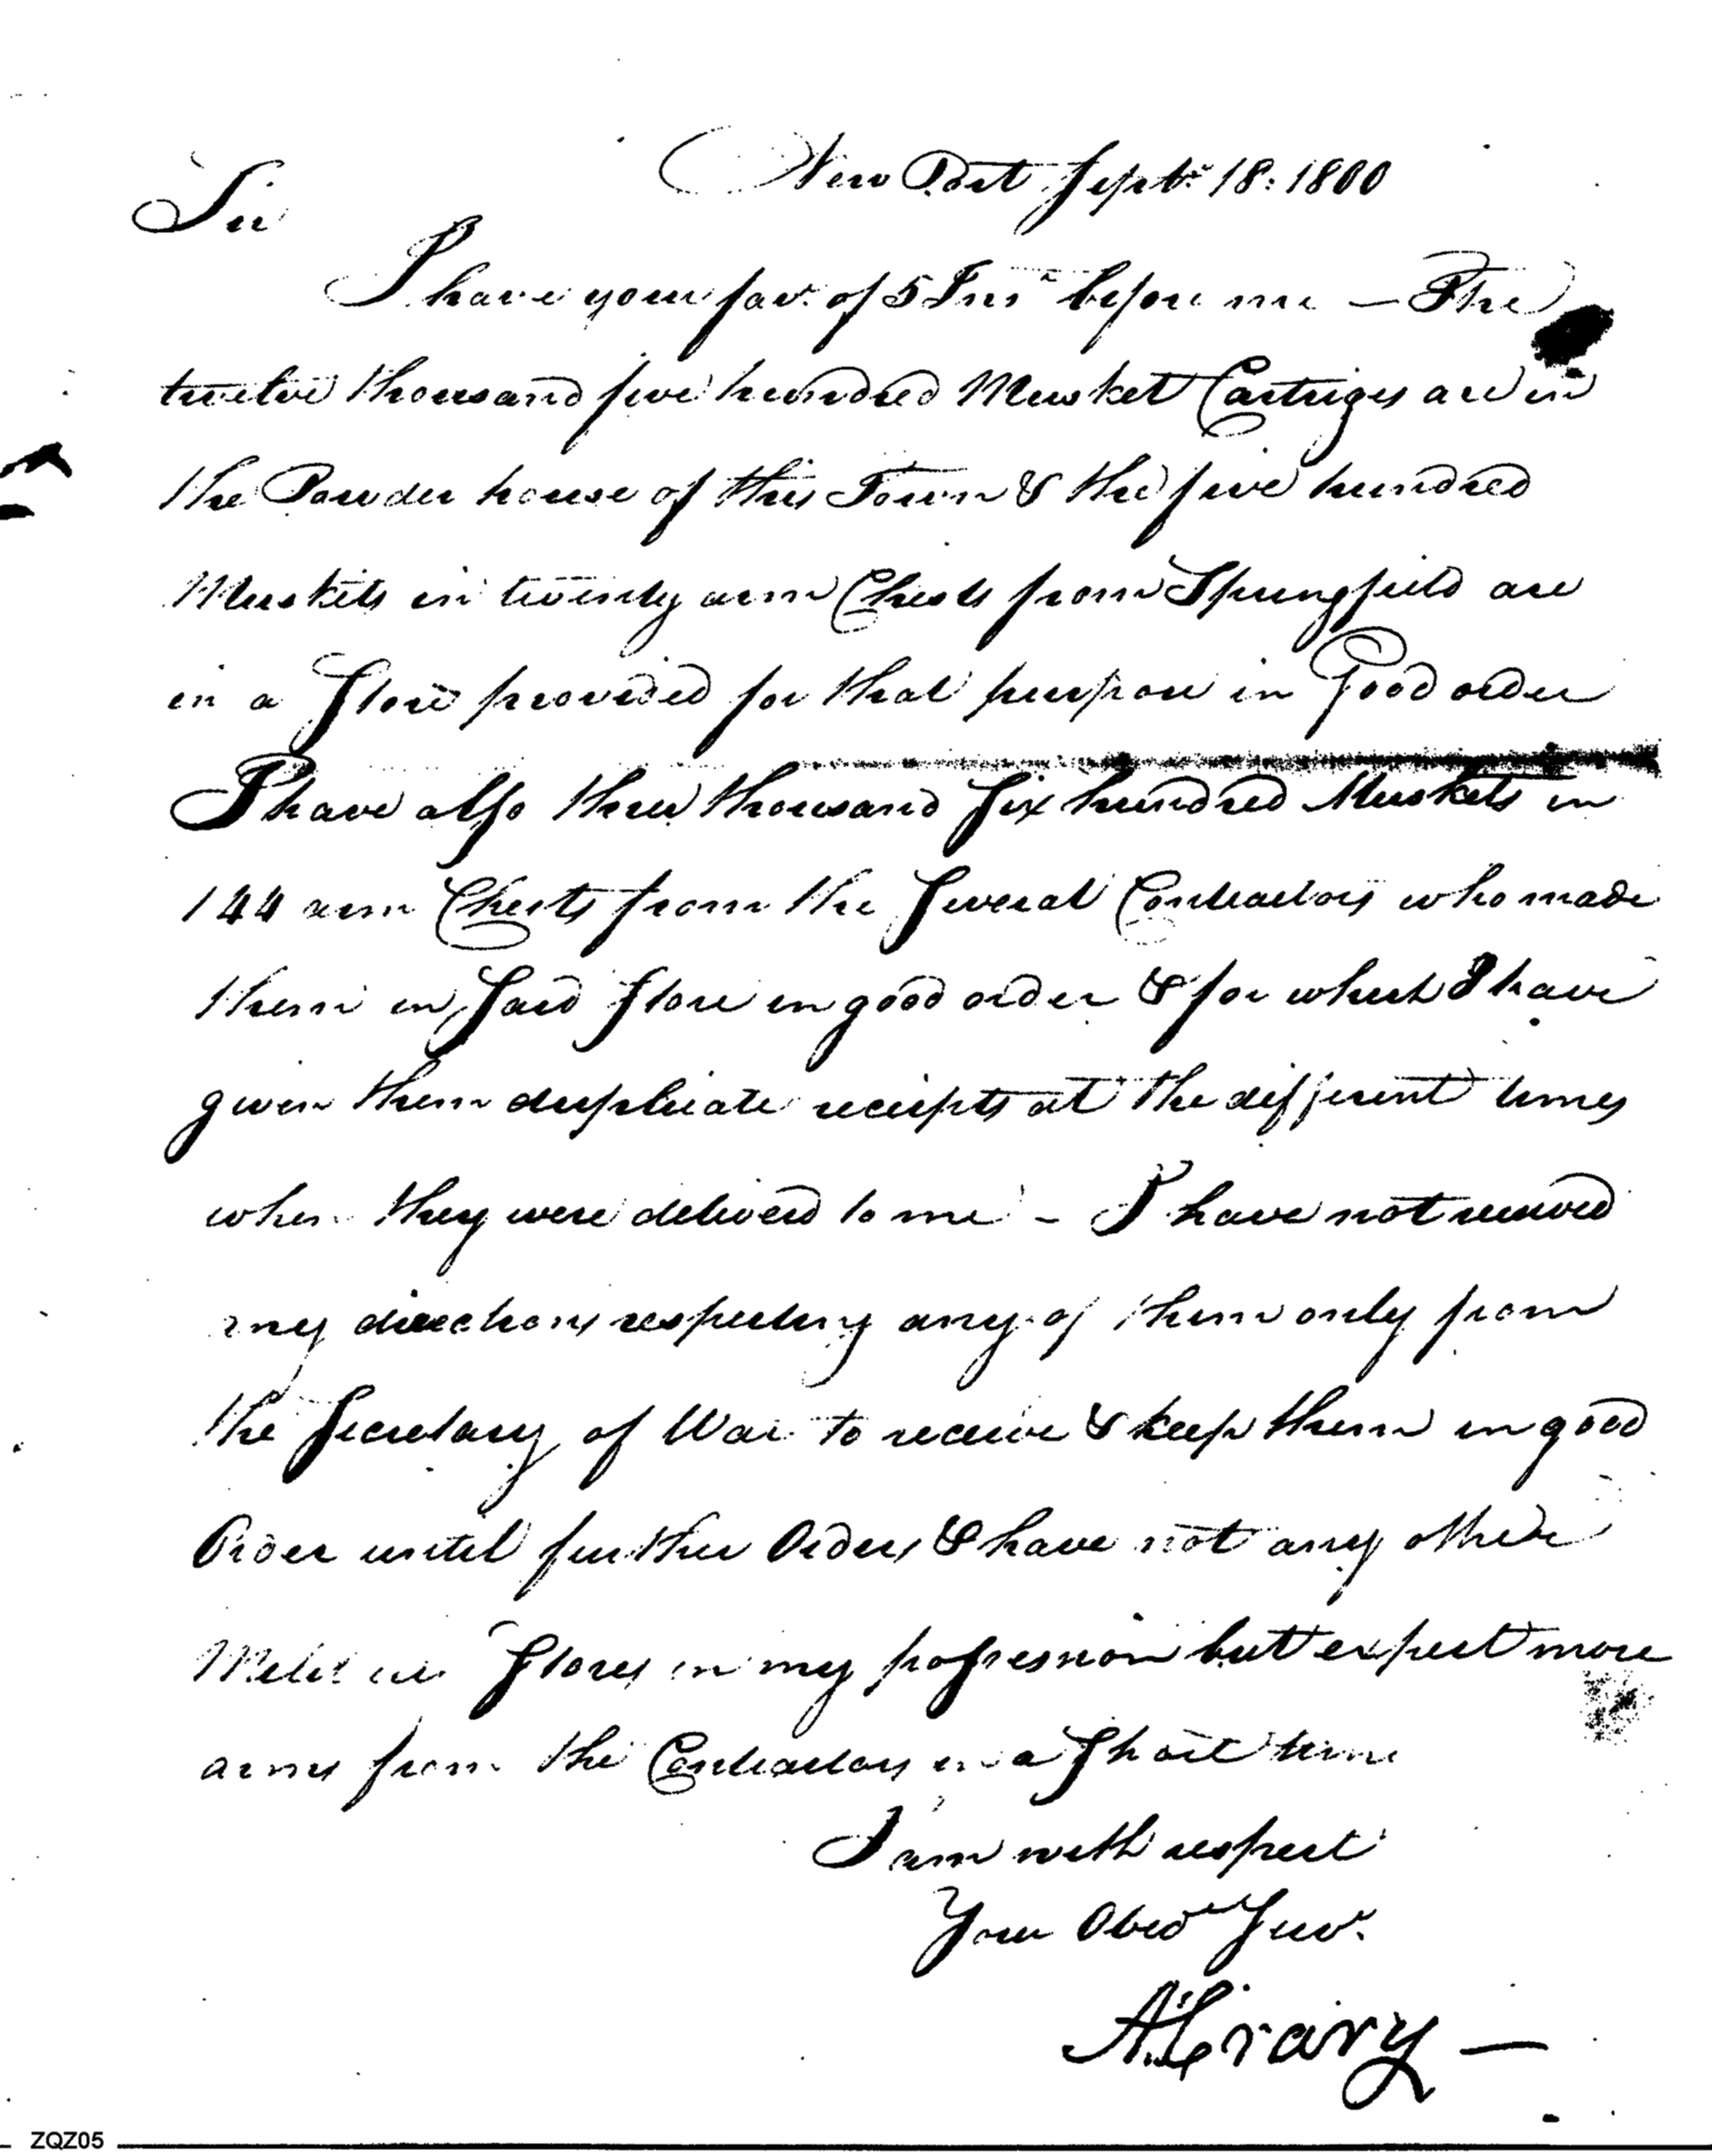 New Port Septr. 18: 1800
Sir
I have your favr. of 5 Inst before me — The
twelve thousand five hundred Musket Cartriges are in
the Powder house of this Town & the five hundred
Muskets in twenty arm Chests from Springfield are
in a Store provided for that purpose in Good order
I have also three thousand Six hundred Muskets in
144 arm Chests from the Several Contractors who made
them in Said Store in good order & for which I have
given them duplicate receipts at the different times
when they were deliverd to me - I have not received
any directions respecting any of them only from
the Secretary of War to receive & keep them in good
Order until further Orders & have not any other
Stores in my possession but expect more
arms from the Contractors in a Short time
I am with respect
Your Obedt Servt.
A. Crary —
ZQZ05